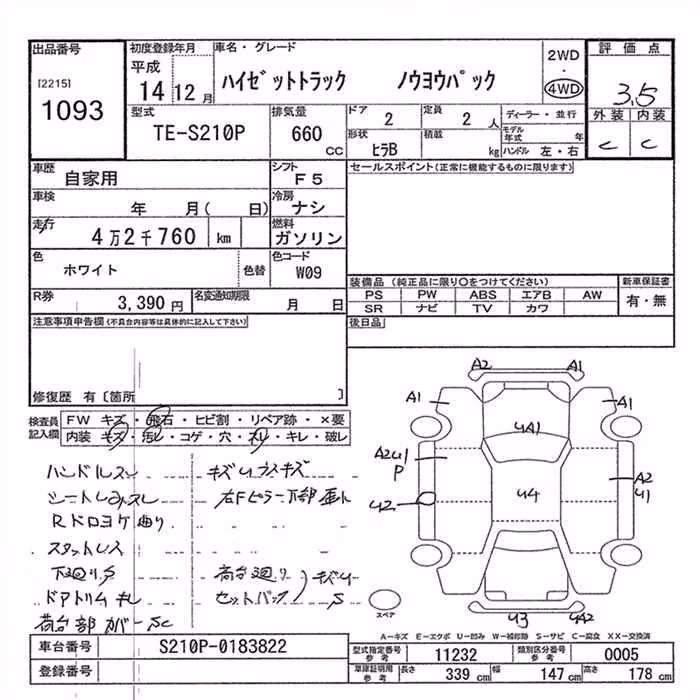 出品番号
[2215]
1093
初度登録年月
平成
14年 12月
車名・グレード
ハイゼットトラック ノウヨウパック
2WD
・
4WD
評価点
3.5
外装 内装
C C
型式
TE-S210P
排気量
660 CC
ドア
2
定員
2 人
形状
ヒラB
積載
kg
ディーラー・並行
モデル年式 年
ハンドル 左・右
車歴
自家用
シフト
F5
車検
年 月( 日)
冷房
ナシ
走行
4万2千760 km
燃料
ガソリン
色
ホワイト
色替
色コード
W09
R券
3,390 円
名変通知期限
月 日
セールスポイント(正常に機能するものに限ります)
装備品 (純正品に限り○をつけてください)
PS PW ABS エアB AW
SR ナビ TV カワ
新車保証書
有・無
後日品
注意事項申告欄(不具合内容等は具体的に記入して下さい)
修復歴 有〔箇所 〕
検査員記入欄
FW キズ・飛石・ヒビ割・リペア跡・×要
内装 キズ・汚レ・コゲ・穴・スレ・キレ・破レ
ハンドルスレ
キズUラスキズ
Rドロヨケ曲り
スタットレス
下廻りS
荷台廻り
キズU
S
ドアトリムキレ
セットバック
荷台部カバーSC
A2 A1
A1 A1
UA1
A2U1
P
U2
U4
A2
U1
U3 UA2
スペア
A-キズ E-エクボ U-凹み W-補修跡 S-サビ C-腐食 XX-交換済
車台番号
S210P-0183822
登録番号
型式指定番号 参考
11232
類別区分番号 参考
0005
車庫証明用 参考
長さ 339 cm 幅 147 cm 高さ 178 cm